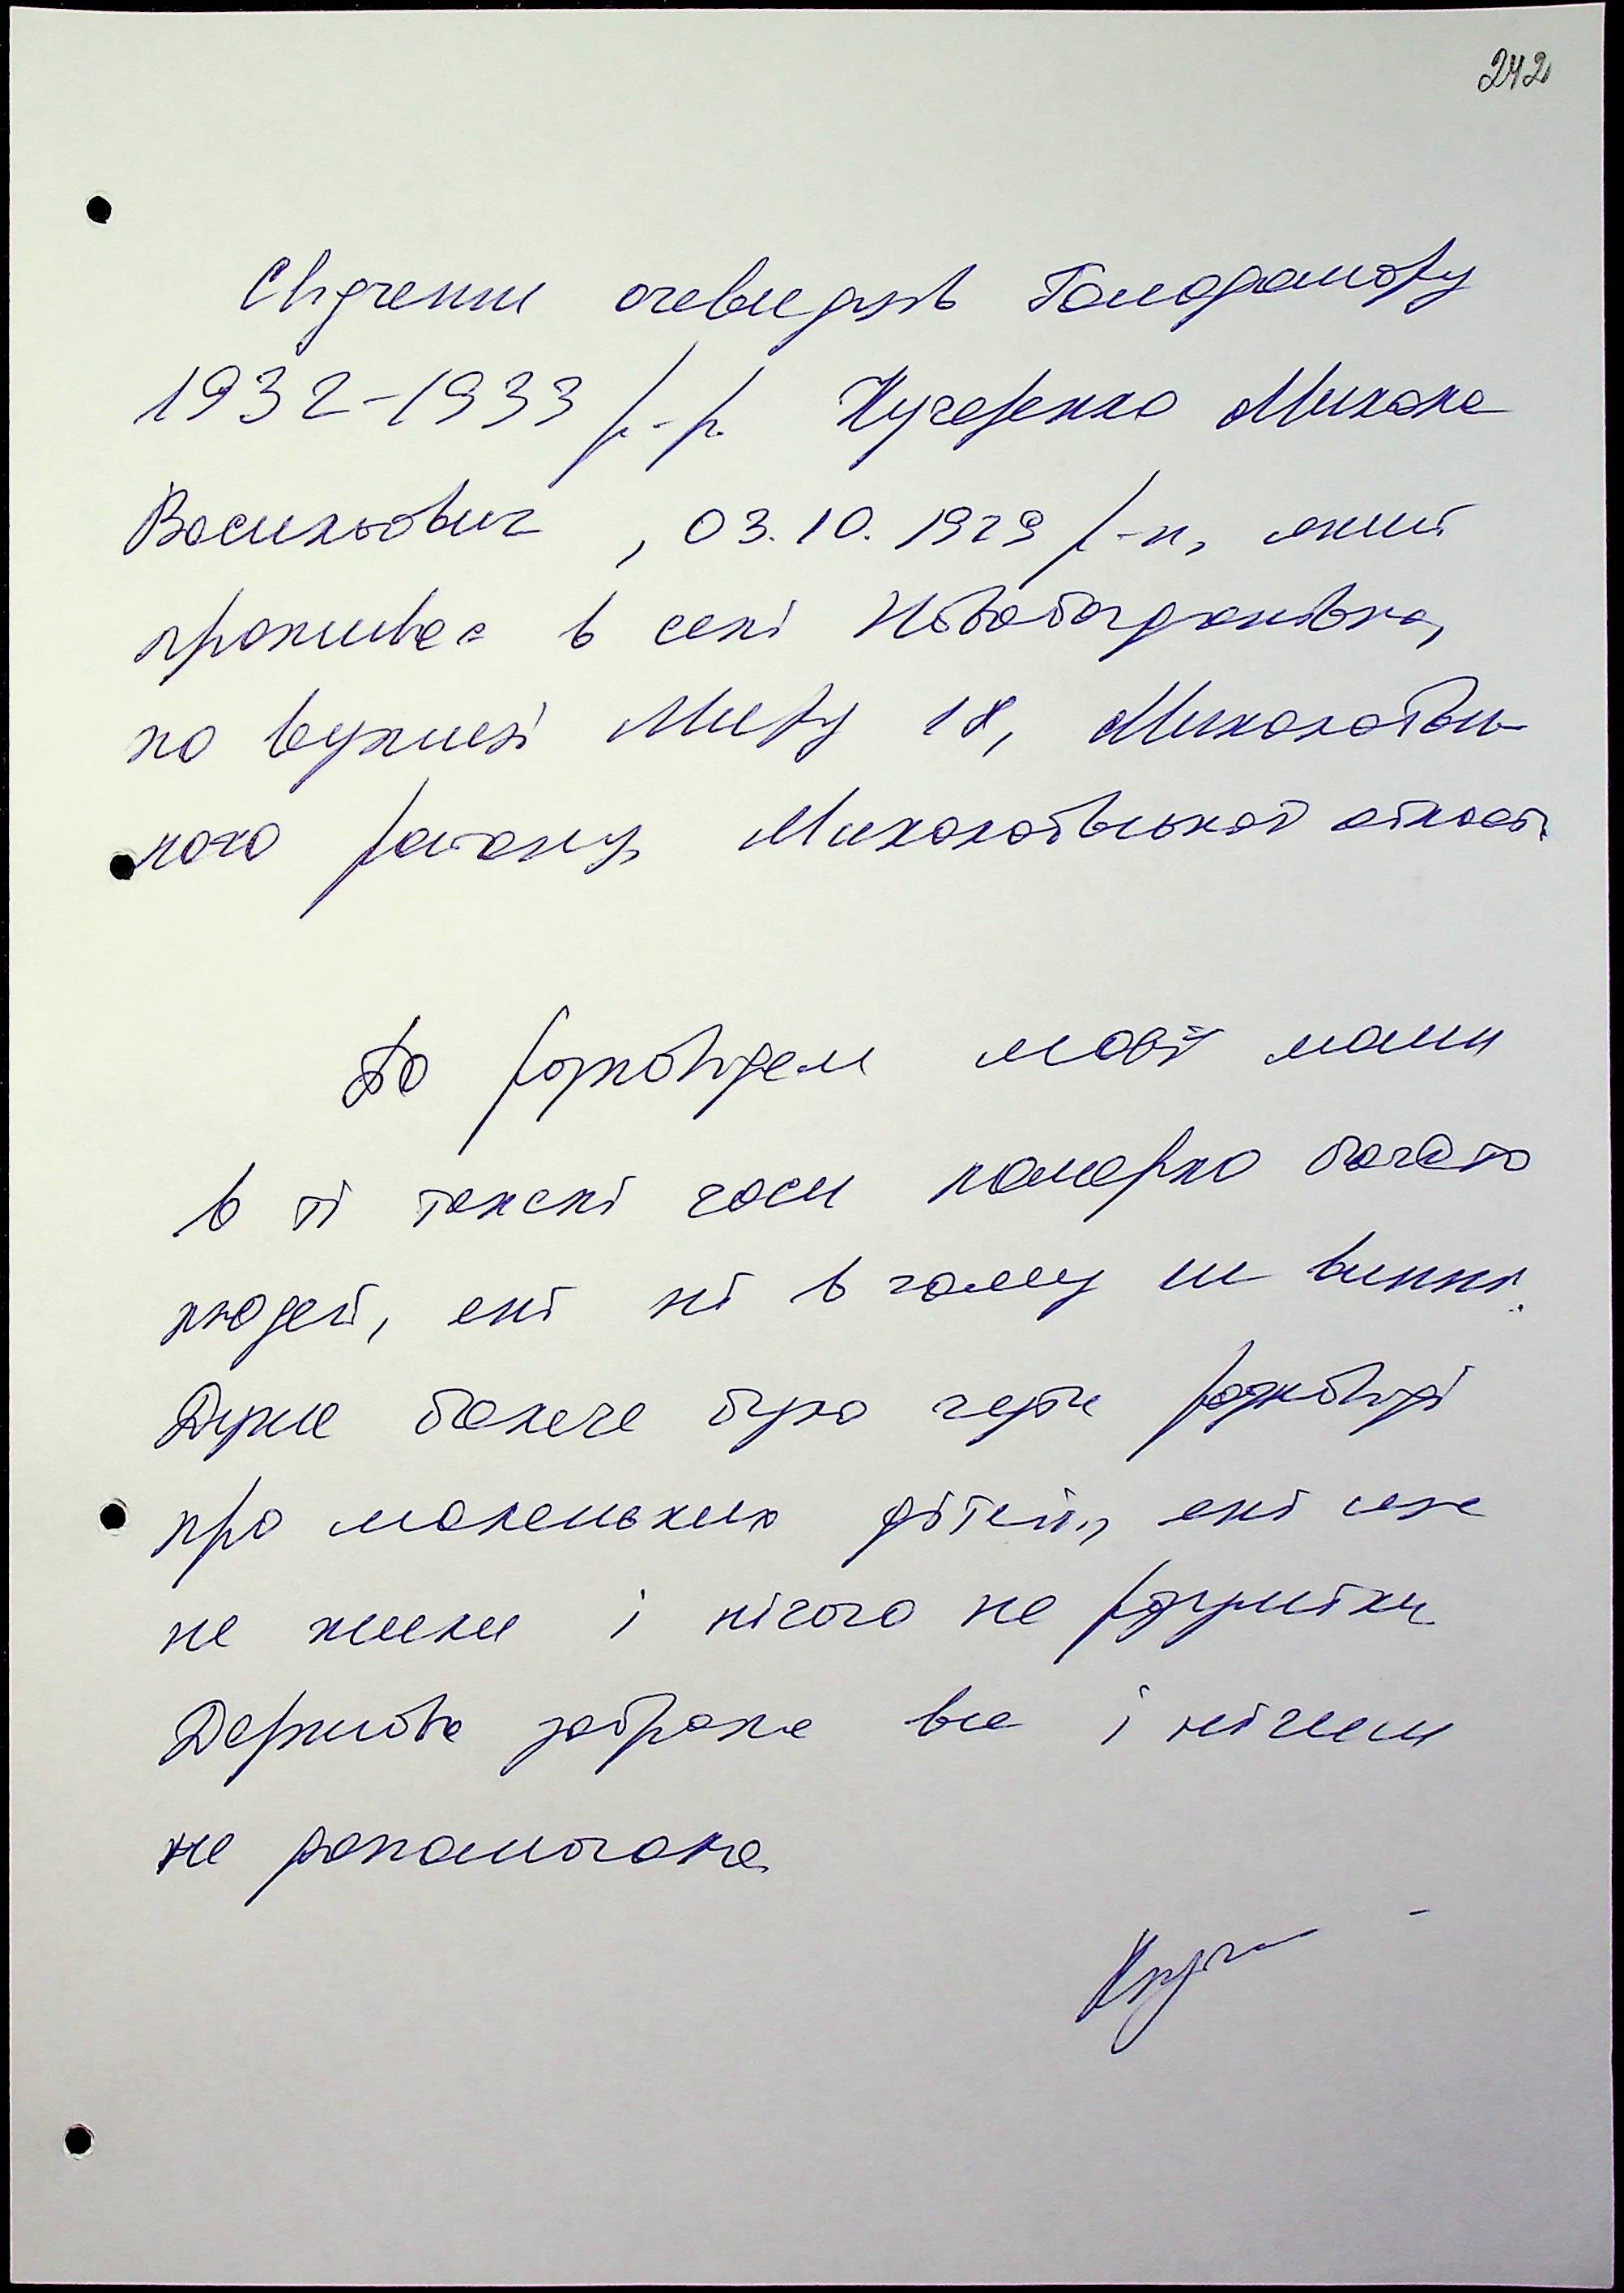 242
Свідчення очевидців Голодомору
1932-1933 р.-р. Кучеренко Микола
Васильович, 03.10.1929 р-н, який
проживає в селі Новобогданівка,
по вулиці Миру 18, Миколаївсь-
кого району Миколаївської област.
По розповідям моєї мами
в ті тяжкі часи померло багато
людей, які ні в чому не винні.
Дуже боляче було чути розповіді
про маленьких дітей, які ще
не жили і нічого не розуміли
Держава забрала все і нічим
не допомогала